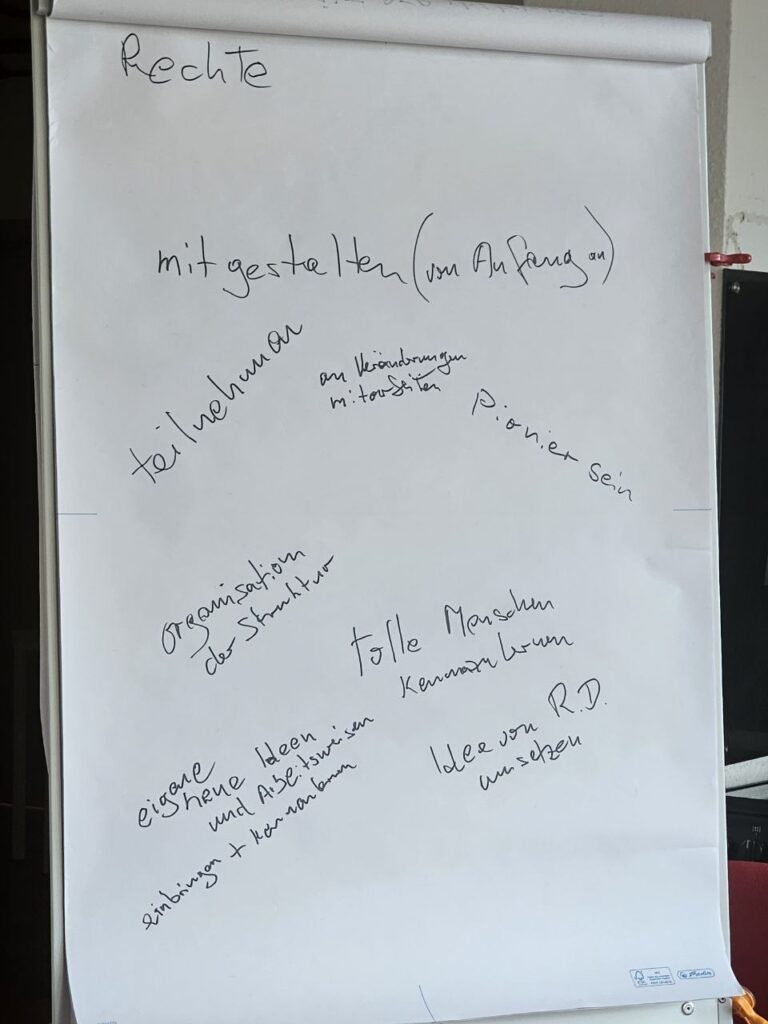 Rechte
mitgestalten (von Anfang an)
teilnehmen
an Veränderungen
mitarbeiten
Pionier sein
Organisation
der Struktur
tolle Menschen
kennenlernen
eigene
neue Ideen
und Arbeitsweisen
einbringen + kennenlernen
Idee von R.D.
umsetzen